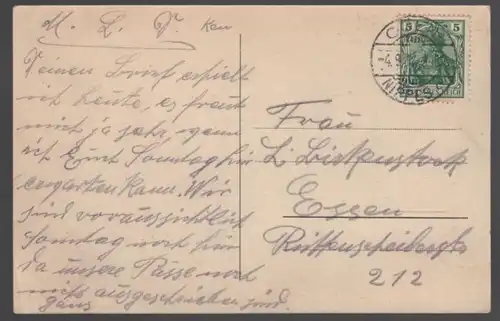 M. L. D.
Deinen Brief erhielt
ich heute, es freut
mich ja sehr, wenn
ich Euch Sonntag hier
erwarten kann. Wir
sind voraussichtlich
Sonntag noch hier
da unsere Pässe noch
nicht ausgeschrieben sind.
ganz
5 5
CÖLN
NIPPES
Frau
L.
Essen
212